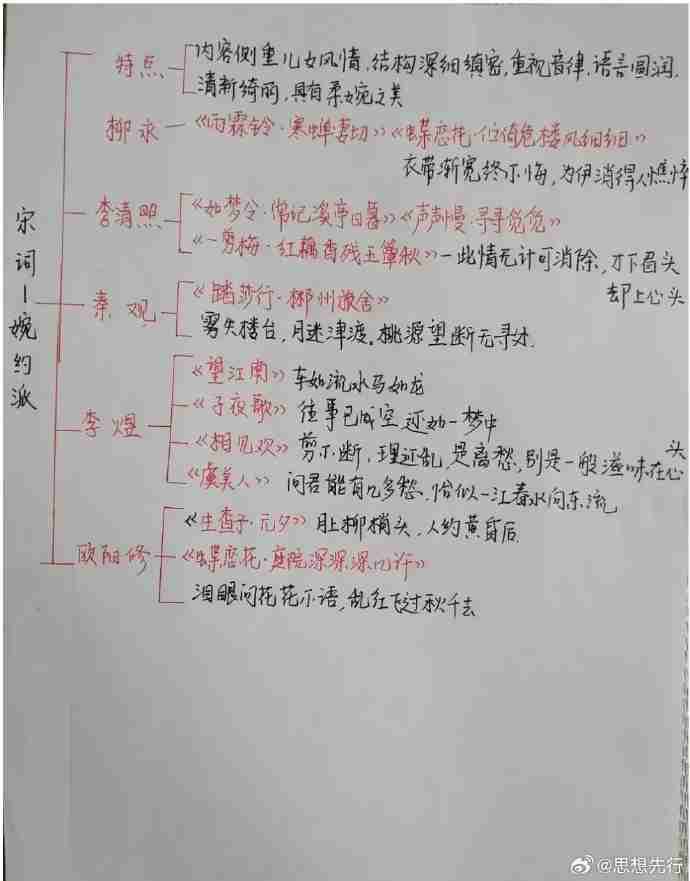 宋词—婉约派
特点
内容侧重儿女风情,结构深细缜密,重视音律,语言圆润,
清新绮丽,具有柔婉之美
柳永—《雨霖铃·寒蝉凄切》《蝶恋花·伫倚危楼风细细》
衣带渐宽终不悔,为伊消得人憔悴
李清照
《如梦令·常记溪亭日暮》《声声慢·寻寻觅觅》
《一剪梅·红藕香残玉簟秋》—此情无计可消除,才下眉头
却上心头
秦观
《踏莎行·郴州旅舍》
雾失楼台,月迷津渡。桃源望断无寻处.
李煜
《望江南》车如流水马如龙
《子夜歌》往事已成空 还如一梦中
《相见欢》剪不断,理还乱,是离愁,别是一般滋味在心头
《虞美人》问君能有几多愁,恰似一江春水向东流
欧阳修
《生查子·元夕》月上柳梢头,人约黄昏后.
《蝶恋花·庭院深深深几许》
泪眼问花花不语,乱红飞过秋千去
@思想先行